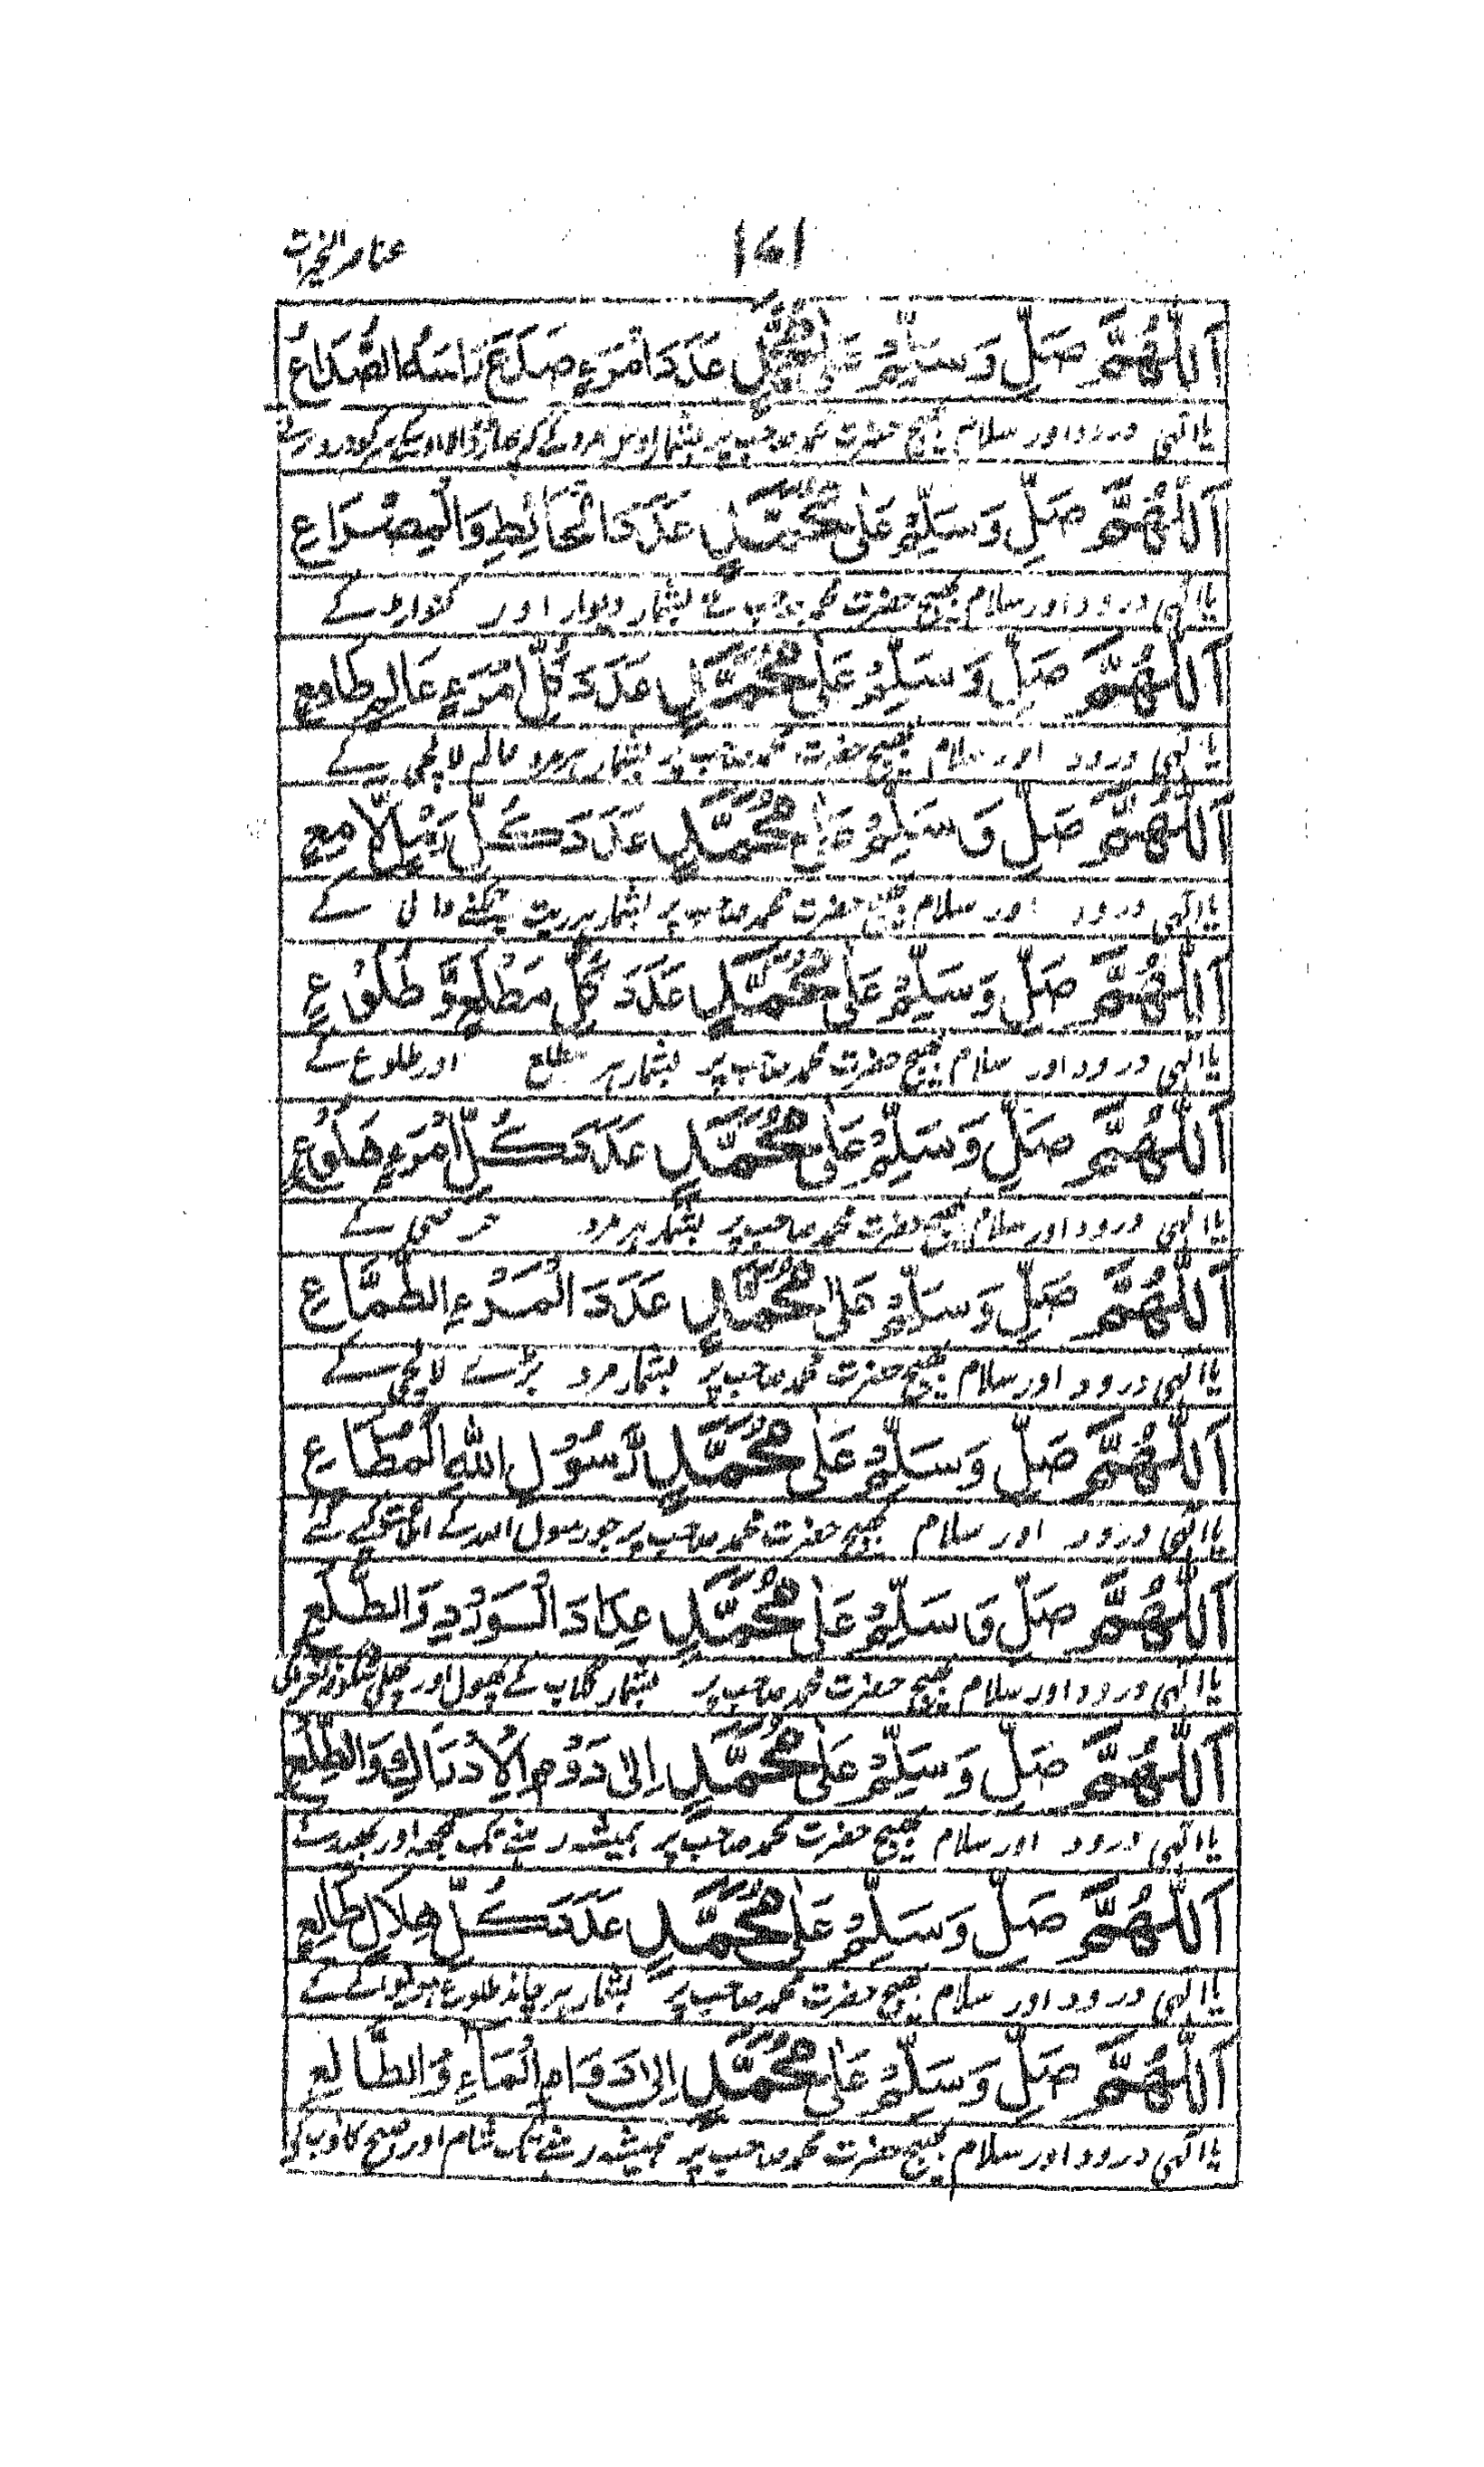 ۱۶۱
عناصر الخیرات
اَللّٰهُمَّ صَلِّ وَسَلِّمْ عَلٰى مُحَمَّدٍ عَدَدَ امْرَءٍ صَدَعَ رَاْسَهُ الصُّدَاعُ
یا الٰہی درود اور سلام بھیج حضرت محمد صاحب پر بشمار اوس مرد کے کہ
اَللّٰهُمَّ صَلِّ وَسَلِّمْ عَلٰى مُحَمَّدٍ عَدَدَ الْحَائِطِ وَالْمِصْرَاعِ
یا الٰہی درود اور سلام بھیج حضرت محمد صاحب بشمار دیوار اور کنواڑ کے
اَللّٰهُمَّ صَلِّ وَسَلِّمْ عَلٰى مُحَمَّدٍ عَدَدَ كُلِّ امْرَءٍ عَالِمٍ طَامِعٍ
یا الٰہی درود اور سلام بھیج حضرت محمد صاحب پر بشمار ہر مرد عالم لالچی کے
اَللّٰهُمَّ صَلِّ وَسَلِّمْ عَلٰى مُحَمَّدٍ عَدَدَ كُلِّ رَمْلٍ لَّامِعٍ
یا الٰہی درود اور سلام بھیج حضرت محمد صاحب پر بشمار ہر ریت چمکنے والی کے
اَللّٰهُمَّ صَلِّ وَسَلِّمْ عَلٰى مُحَمَّدٍ عَدَدَ كُلِّ مَطْلَعٍ وَّ طُلُوْعٍ
یا الٰہی درود اور سلام بھیج حضرت محمد صاحب پر بشمار ہر مطلع اور طلوع کے
اَللّٰهُمَّ صَلِّ وَسَلِّمْ عَلٰى مُحَمَّدٍ عَدَدَ كُلِّ امْرَءٍ هَلُوْعٍ
یا الٰہی درود اور سلام بھیج حضرت محمد صاحب پر بشمار ہر مرد حرصی کے
اَللّٰهُمَّ صَلِّ وَسَلِّمْ عَلٰى مُحَمَّدٍ عَدَدَ الْمَرْءِ الطَّمَّاعِ
یا الٰہی درود اور سلام بھیج حضرت محمد صاحب پر بشمار مرد بڑے لالچی کے
اَللّٰهُمَّ صَلِّ وَسَلِّمْ عَلٰى مُحَمَّدٍ رَّسُوْلِ اللهِ الْمُطَاعِ
یا الٰہی درود اور سلام بھیج حضرت محمد صاحب پر جو رسول اللہ کے
اَللّٰهُمَّ صَلِّ وَسَلِّمْ عَلٰى مُحَمَّدٍ عِدَادَ الْوَرْدِ وَالطَّلْعِ
یا الٰہی درود اور سلام بھیج حضرت محمد صاحب پر بشمار گلاب کے پھول اور
اَللّٰهُمَّ صَلِّ وَسَلِّمْ عَلٰى مُحَمَّدٍ اِلٰى دَوْمِ الْاِدْرَاكِ وَالطِّلْعِ
یا الٰہی درود اور سلام بھیج حضرت محمد صاحب پر ہمیشہ رہنے تک سمجھ اور
اَللّٰهُمَّ صَلِّ وَسَلِّمْ عَلٰى مُحَمَّدٍ عَدَدَ كُلِّ هِلَالٍ طَالِعٍ
یا الٰہی درود اور سلام بھیج حضرت محمد صاحب پر بشمار ہر چاند طلوع
اَللّٰهُمَّ صَلِّ وَسَلِّمْ عَلٰى مُحَمَّدٍ اِلٰى دَوَامِ الْمَسَاءِ وَالطَّالِعِ
یا الٰہی درود اور سلام بھیج حضرت محمد صاحب پر ہمیشہ رہنے تک شام اور صبح کاذب کو